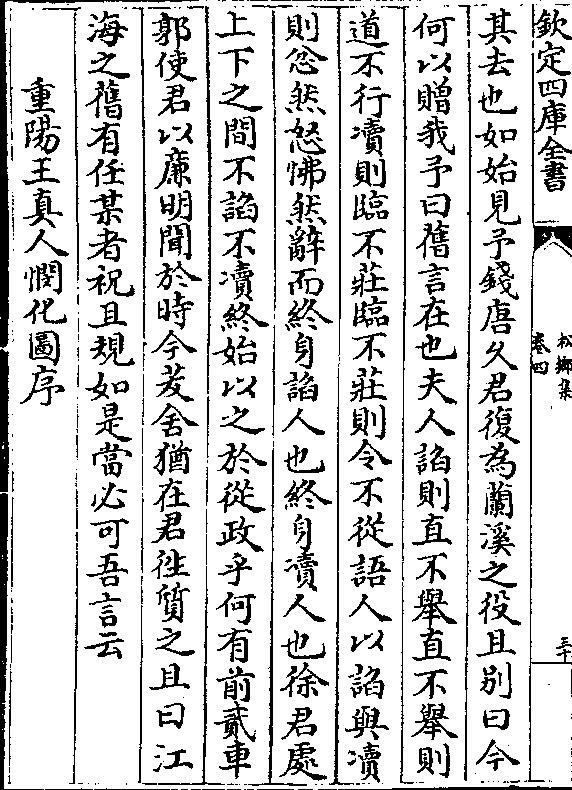 欽定四庫全書
松鄉集
卷四
三十
其去也如始見予錢唐久君復為蘭溪之役且別曰今
何以贈我予曰舊言在也夫人諂則直不舉直不舉則
道不行瀆則臨不莊臨不莊則令不從語人以諂與瀆
則忿然怒怫然辭而終身諂人也終身瀆人也徐君處
上下之間不諂不瀆終始以之於從政乎何有前貳車
郭使君以廉明聞於時今茇舍猶在君徃質之且曰江
海之舊有任某者祝且規如是當必可吾言云
重陽王真人憫化圖序